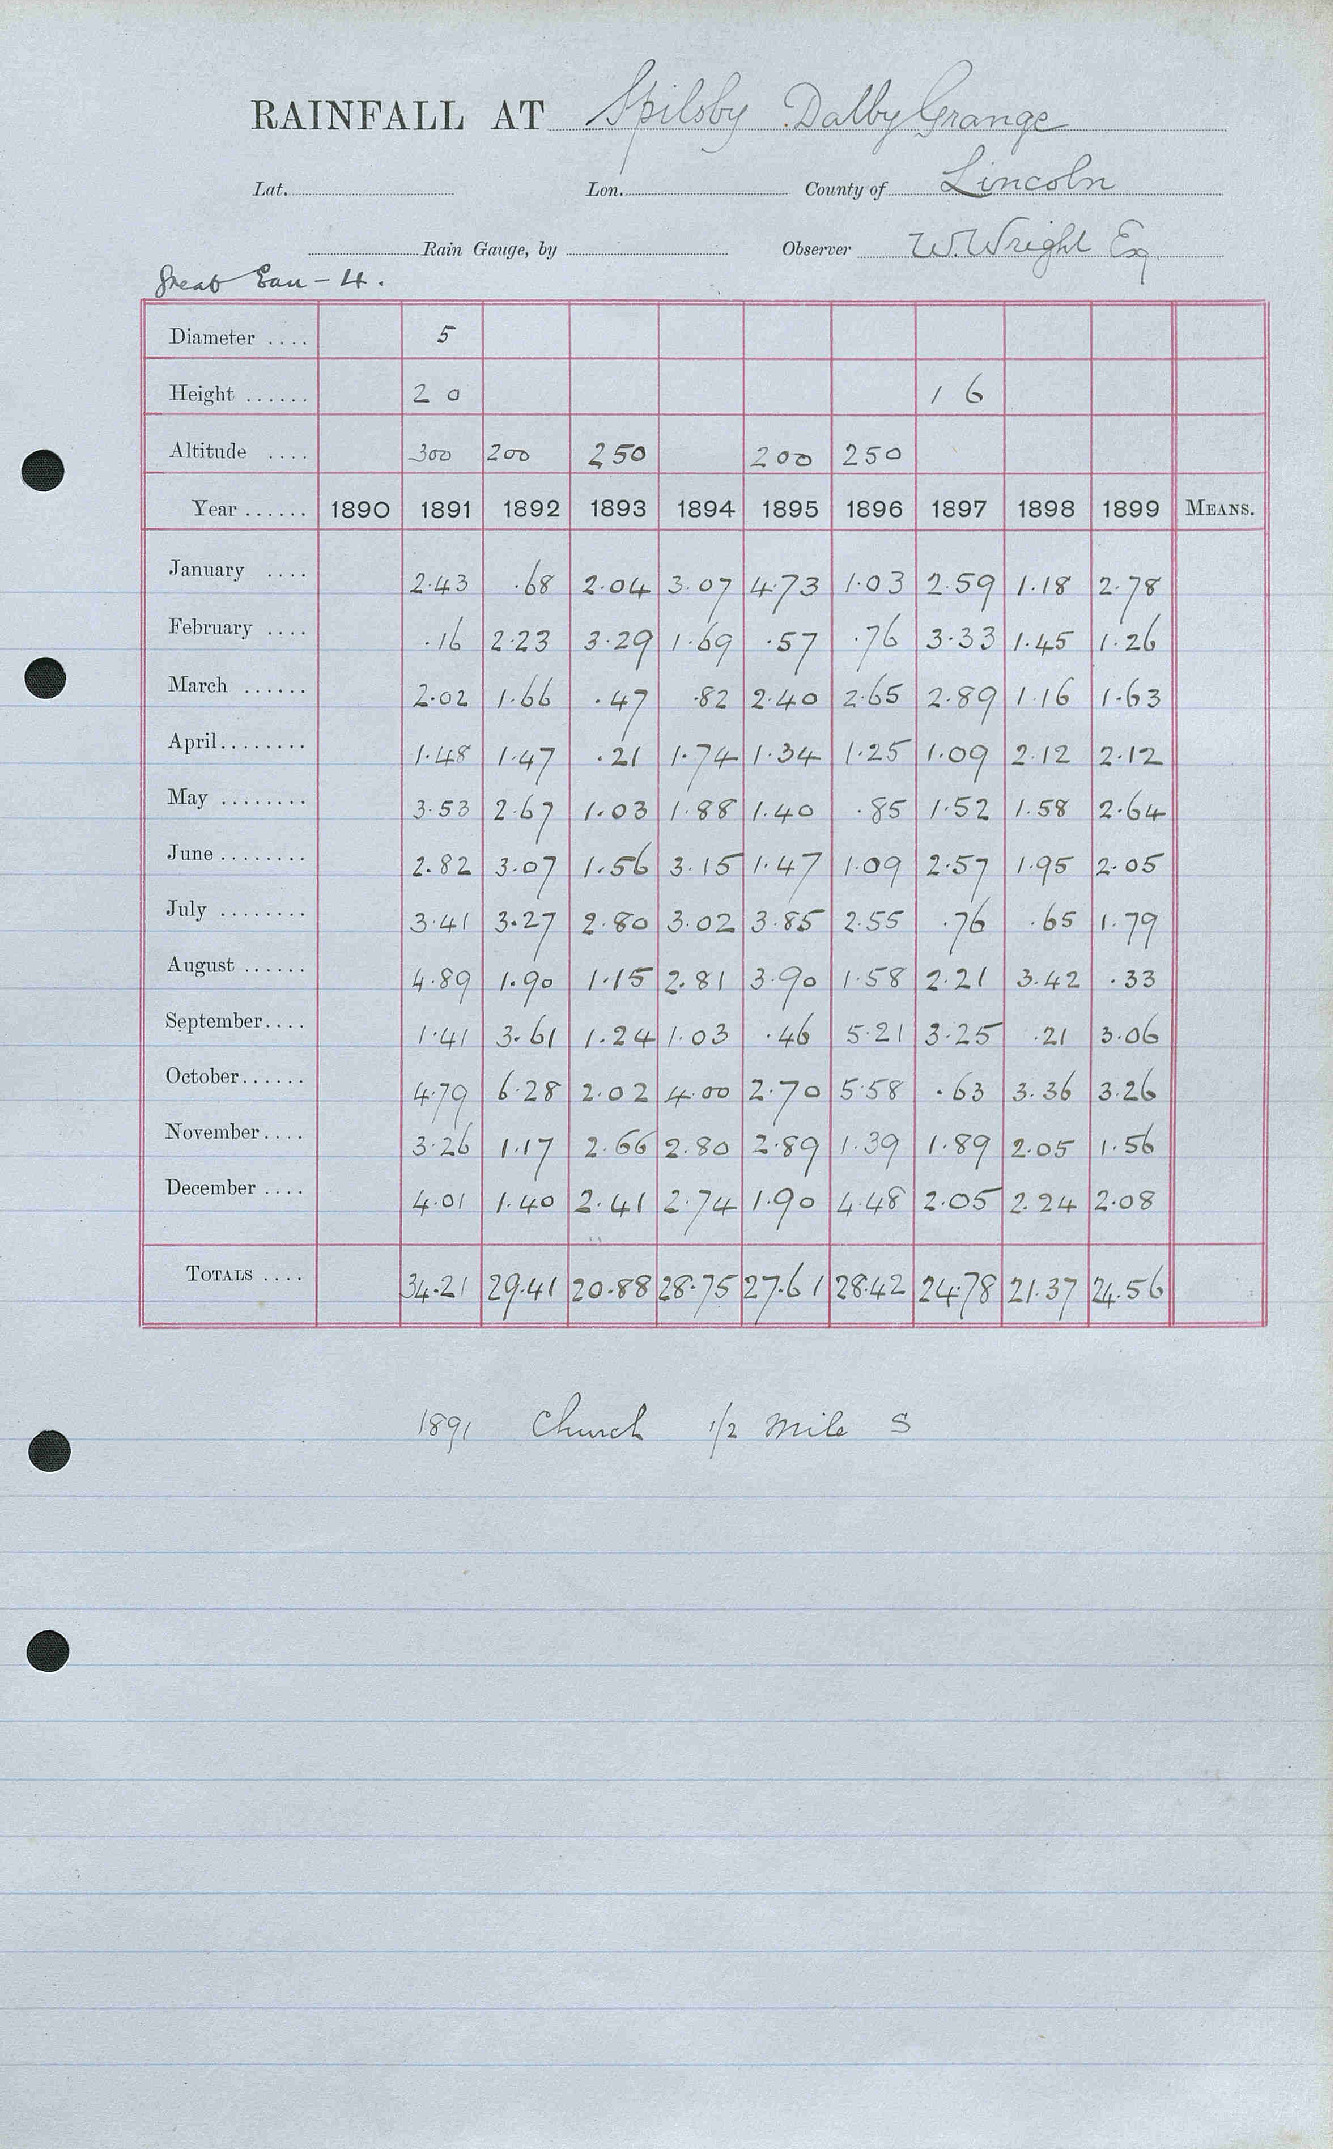 RAINFALL AT Spilsby Dalby Grange
Lat. Lon. County of Lincoln
Rain Gauge, by Observer W. Wright Esq
Great Eau - 4.
Diameter .... 5
Height ...... 2 0 1 6
Altitude .... 300 200 250 200 250
Year ...... 1890 1891 1892 1893 1894 1895 1896 1897 1898 1899 MEANS.
January .... 2.43 .68 2.04 3.07 4.73 1.03 2.59 1.18 2.78
February .... .16 2.23 3.29 1.69 .57 .76 3.33 1.45 1.26
March ...... 2.02 1.66 .47 .82 2.40 2.65 2.89 1.16 1.63
April........ 1.48 1.47 .21 1.74 1.34 1.25 1.09 2.12 2.12
May ........ 3.53 2.67 1.03 1.88 1.40 .85 1.52 1.58 2.64
June ........ 2.82 3.07 1.56 3.15 1.47 1.09 2.57 1.95 2.05
July ........ 3.41 3.27 2.80 3.02 3.85 2.55 .76 .65 1.79
August ...... 4.89 1.90 1.15 2.81 3.90 1.58 2.21 3.42 .33
September.... 1.41 3.61 1.24 1.03 .46 5.21 3.25 .21 3.06
October...... 4.79 6.28 2.02 4.00 2.70 5.58 .63 3.36 3.26
November.... 3.26 1.17 2.66 2.80 2.89 1.39 1.89 2.05 1.56
December .... 4.01 1.40 2.41 2.74 1.90 4.48 2.05 2.24 2.08
TOTALS .... 34.21 29.41 20.88 28.75 27.61 28.42 24.78 21.37 24.56
1891 Church 1/2 mile S